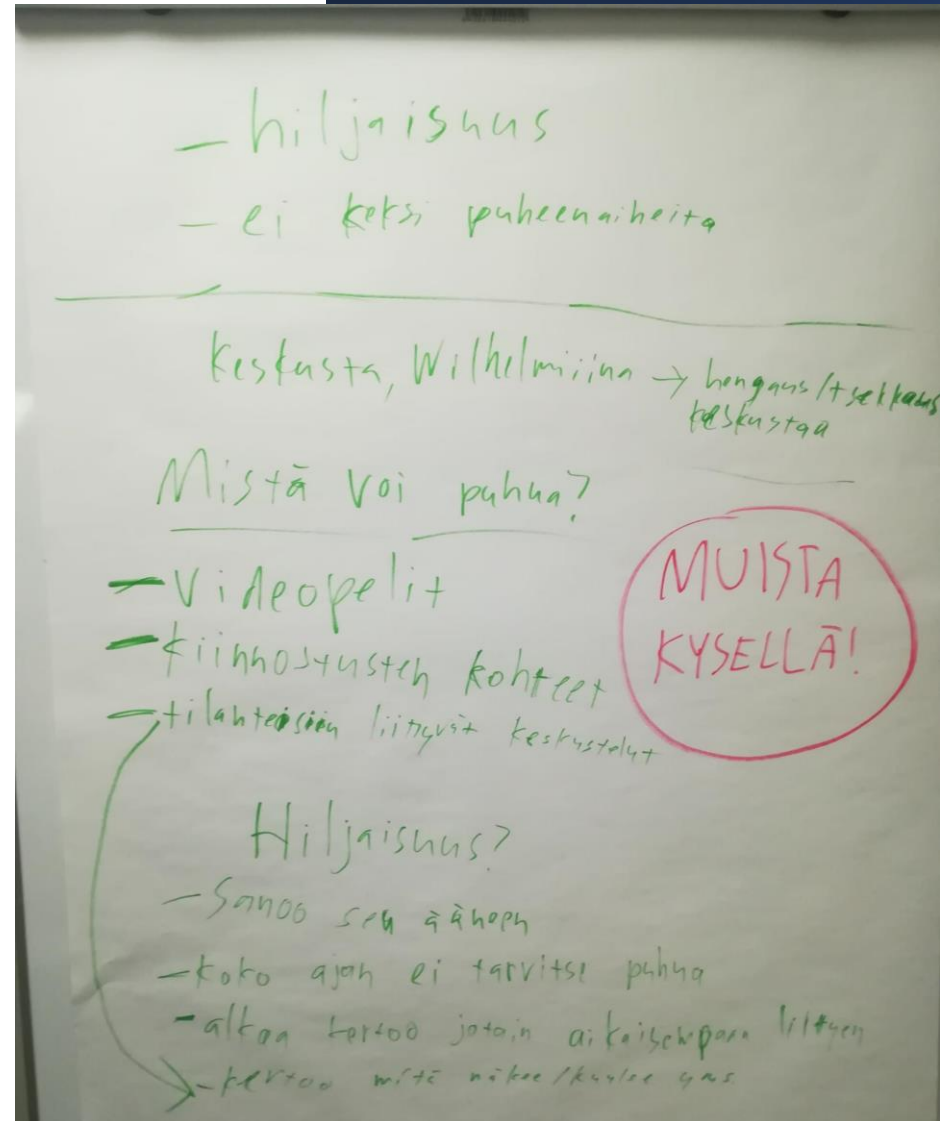 - hiljaisuus
- ei keksi puheenaiheita
Keskusta, Wilhelmiina → hengaus/tsekkaus
keskustaa
Mistä voi puhua?
- Videopelit
- kiinnostusten kohteet
- tilanteisiin liittyvät keskustelut
MUISTA
KYSELLÄ!
Hiljaisuus?
- Sanoo sen ääneen
- koko ajan ei tarvitse puhua
- alkaa kertoo jotain aikaisempaan liittyen
- kertoo mitä näkee/kuulee yms.